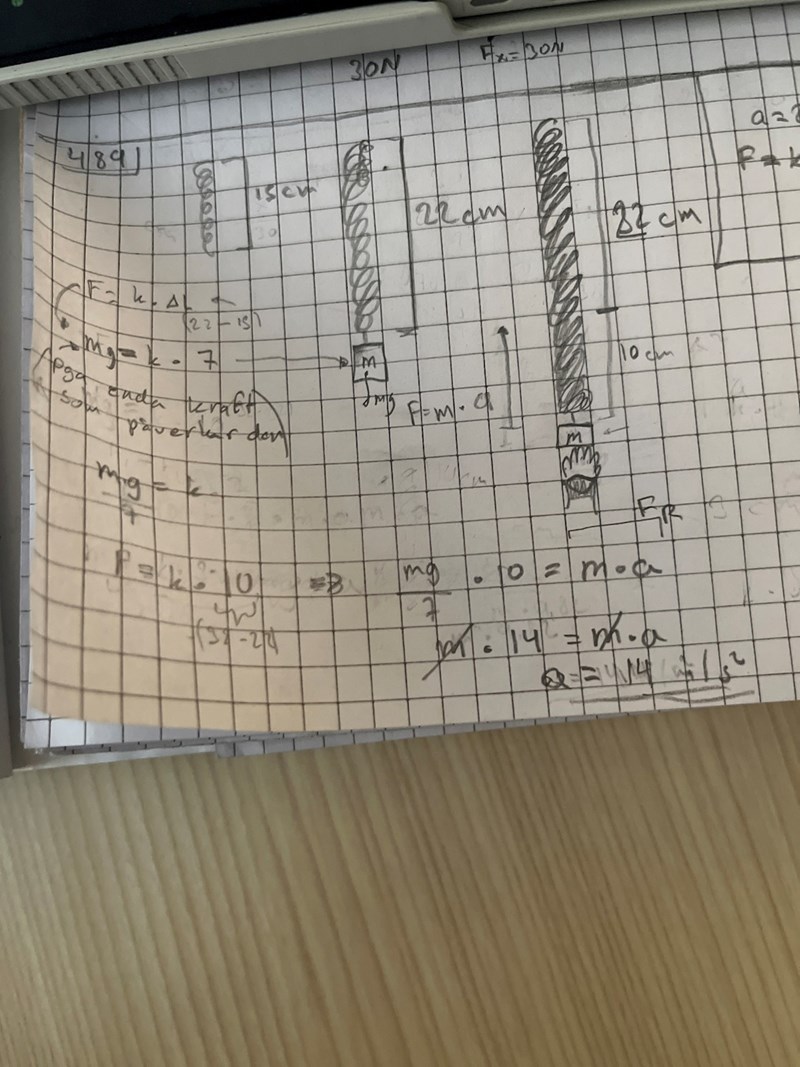 30N
Fx = 30N
4|89
15 cm
22 cm
22 cm
10 cm
a =
F = k
F = k · ΔL
(22 - 15)
mg = k · 7
m
mg
pga enda kraft
som påverkar den
F = m · a
m
mg/7 = k
FR
F = k · 10
(32 - 22)
mg/7 · 10 = m · a
m · 14 = m · a
a = 14 m/s²